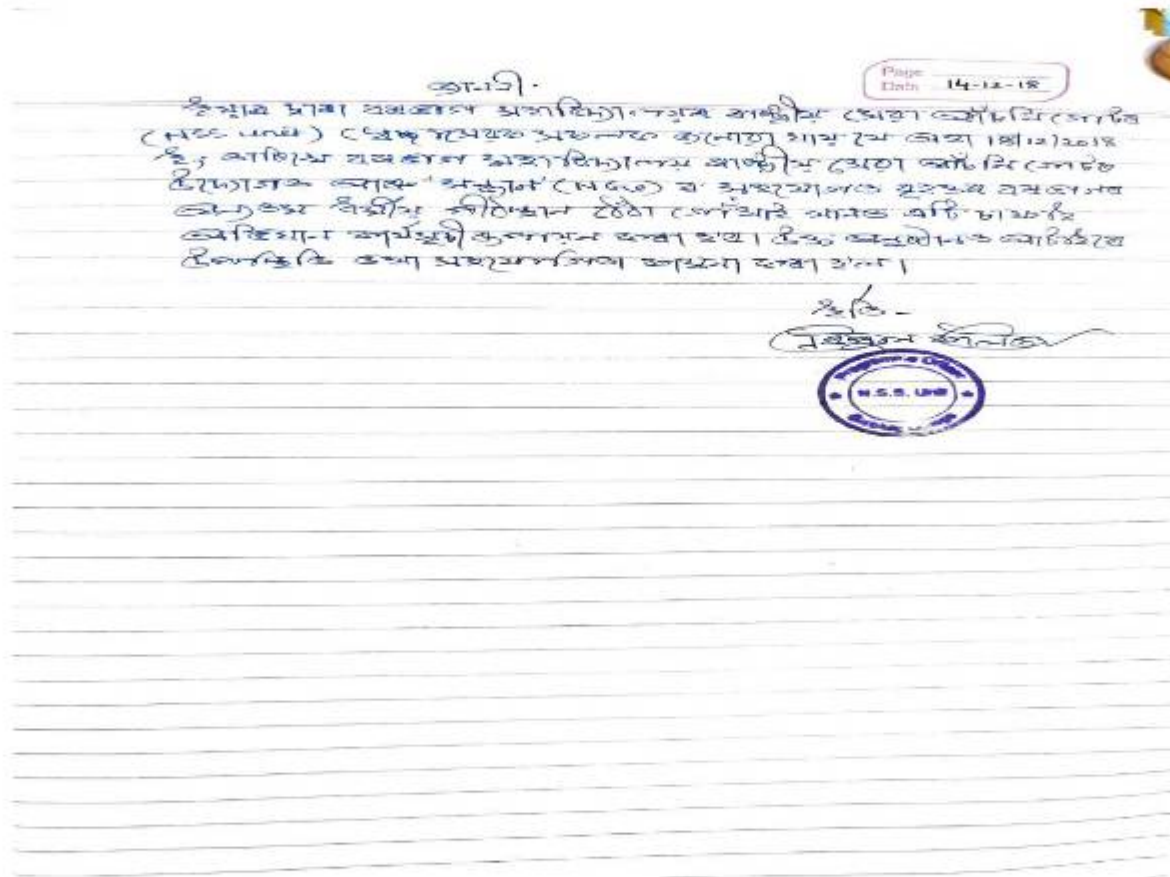 Page
Date 14-12-18
জাননী.
ইয়াৰ দ্বাৰা বৰভাগ মহাবিদ্যালয়ৰ ৰাষ্ট্ৰীয় সেৱা আঁচনি গোটৰ
(NSS Unit) স্বেচ্ছাসেৱক সকলক জনোৱা যায় যে অহা 18/12/2018
ইং তাৰিখে বৰভাগ মহাবিদ্যালয় ৰাষ্ট্ৰীয় সেৱা আঁচনি গোটৰ
উদ্যোগত আৰু 'সন্ধান' (NGO) ৰ সহযোগত বৃহত্তৰ বৰভাগৰ
অন্যতম ধৰ্মীয় পীঠস্থান গোঁসাই থানত এটি চাফাই
অভিযান কাৰ্যসূচী ৰূপায়ন কৰা হব। উক্ত অনুষ্ঠানত আটাইৰে
উপস্থিতি তথা সহযোগিতা কামনা কৰা হ'ল।
ইতি -
কলিতা
Programme Officer
N.S.S. Unit